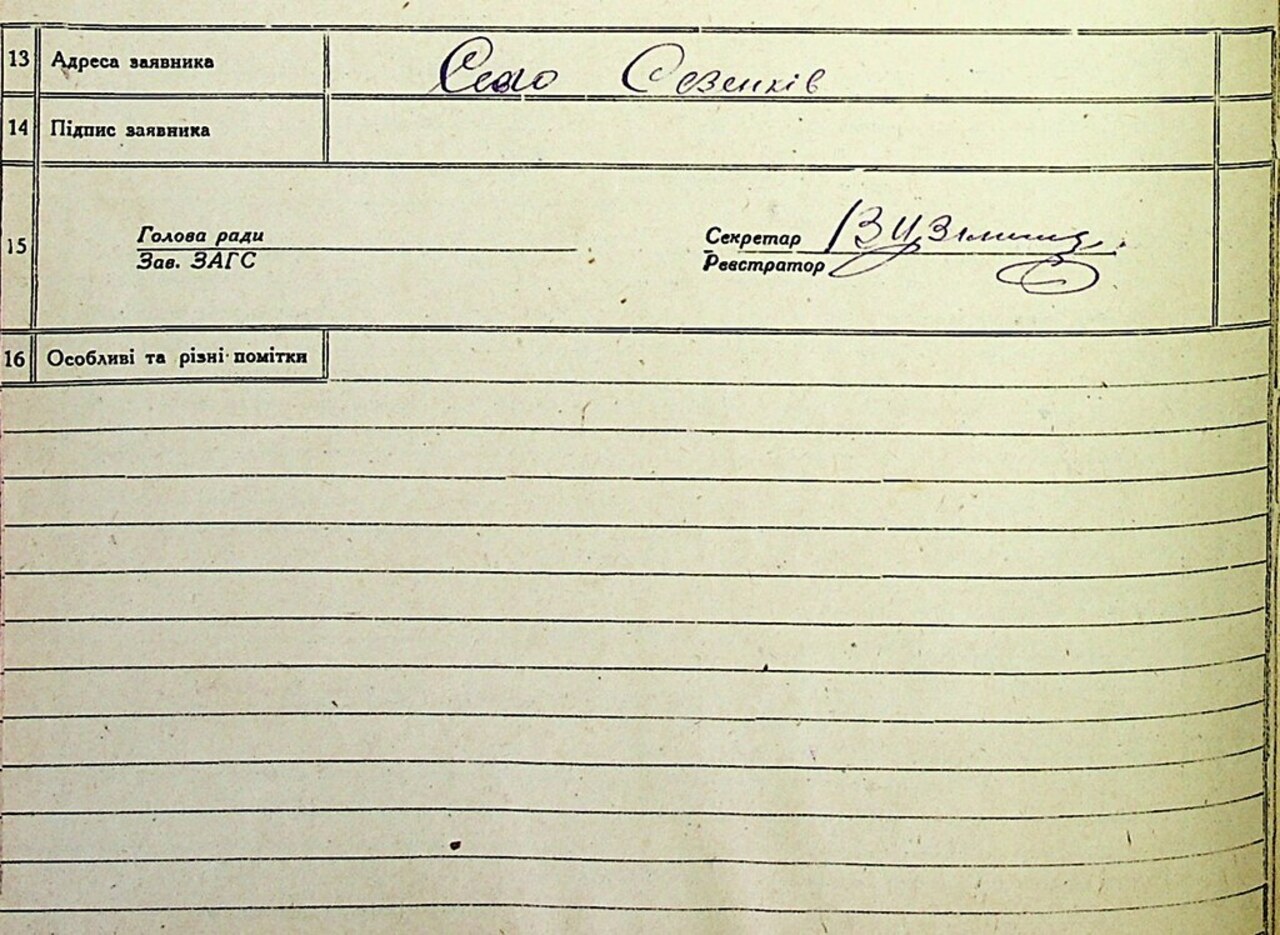 13 Адреса заявника Село Сезенків
14 Підпис заявника
15 Голова ради Секретар
Зав. ЗАГС Реєстратор
16 Особливі та різні помітки